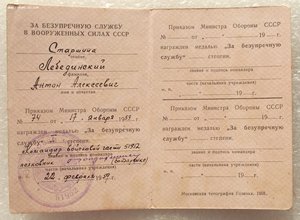 ЗА БЕЗУПРЕЧНУЮ СЛУЖБУ
В ВООРУЖЕННЫХ СИЛАХ СССР
Старшина
звание
Лебединский
фамилия,
Антон Алексеевич
имя и отчество
Приказом Министра Обороны СССР
№ 74 от „17" января 1989 г.
награжден медалью „За безупречную
службу"
степени.
Командир войсковой части
звание и подпись командира
полковник
части (начальника учреждения)
„22" февраля 1989 г.
Приказом Министра Обороны СССР
№ от „ " 19 г.
награжден медалью „За безупречную
службу" степени.
звание и подпись командира
части (начальника учреждения)
„ " 19 г.
Приказом Министра Обороны СССР
№ от „ " 19 г.
награжден медалью „За безупречную
службу" степени.
звание и подпись командира
части (начальника учреждения)
„ " 19 г.
Московская типография Гознака. 1988.